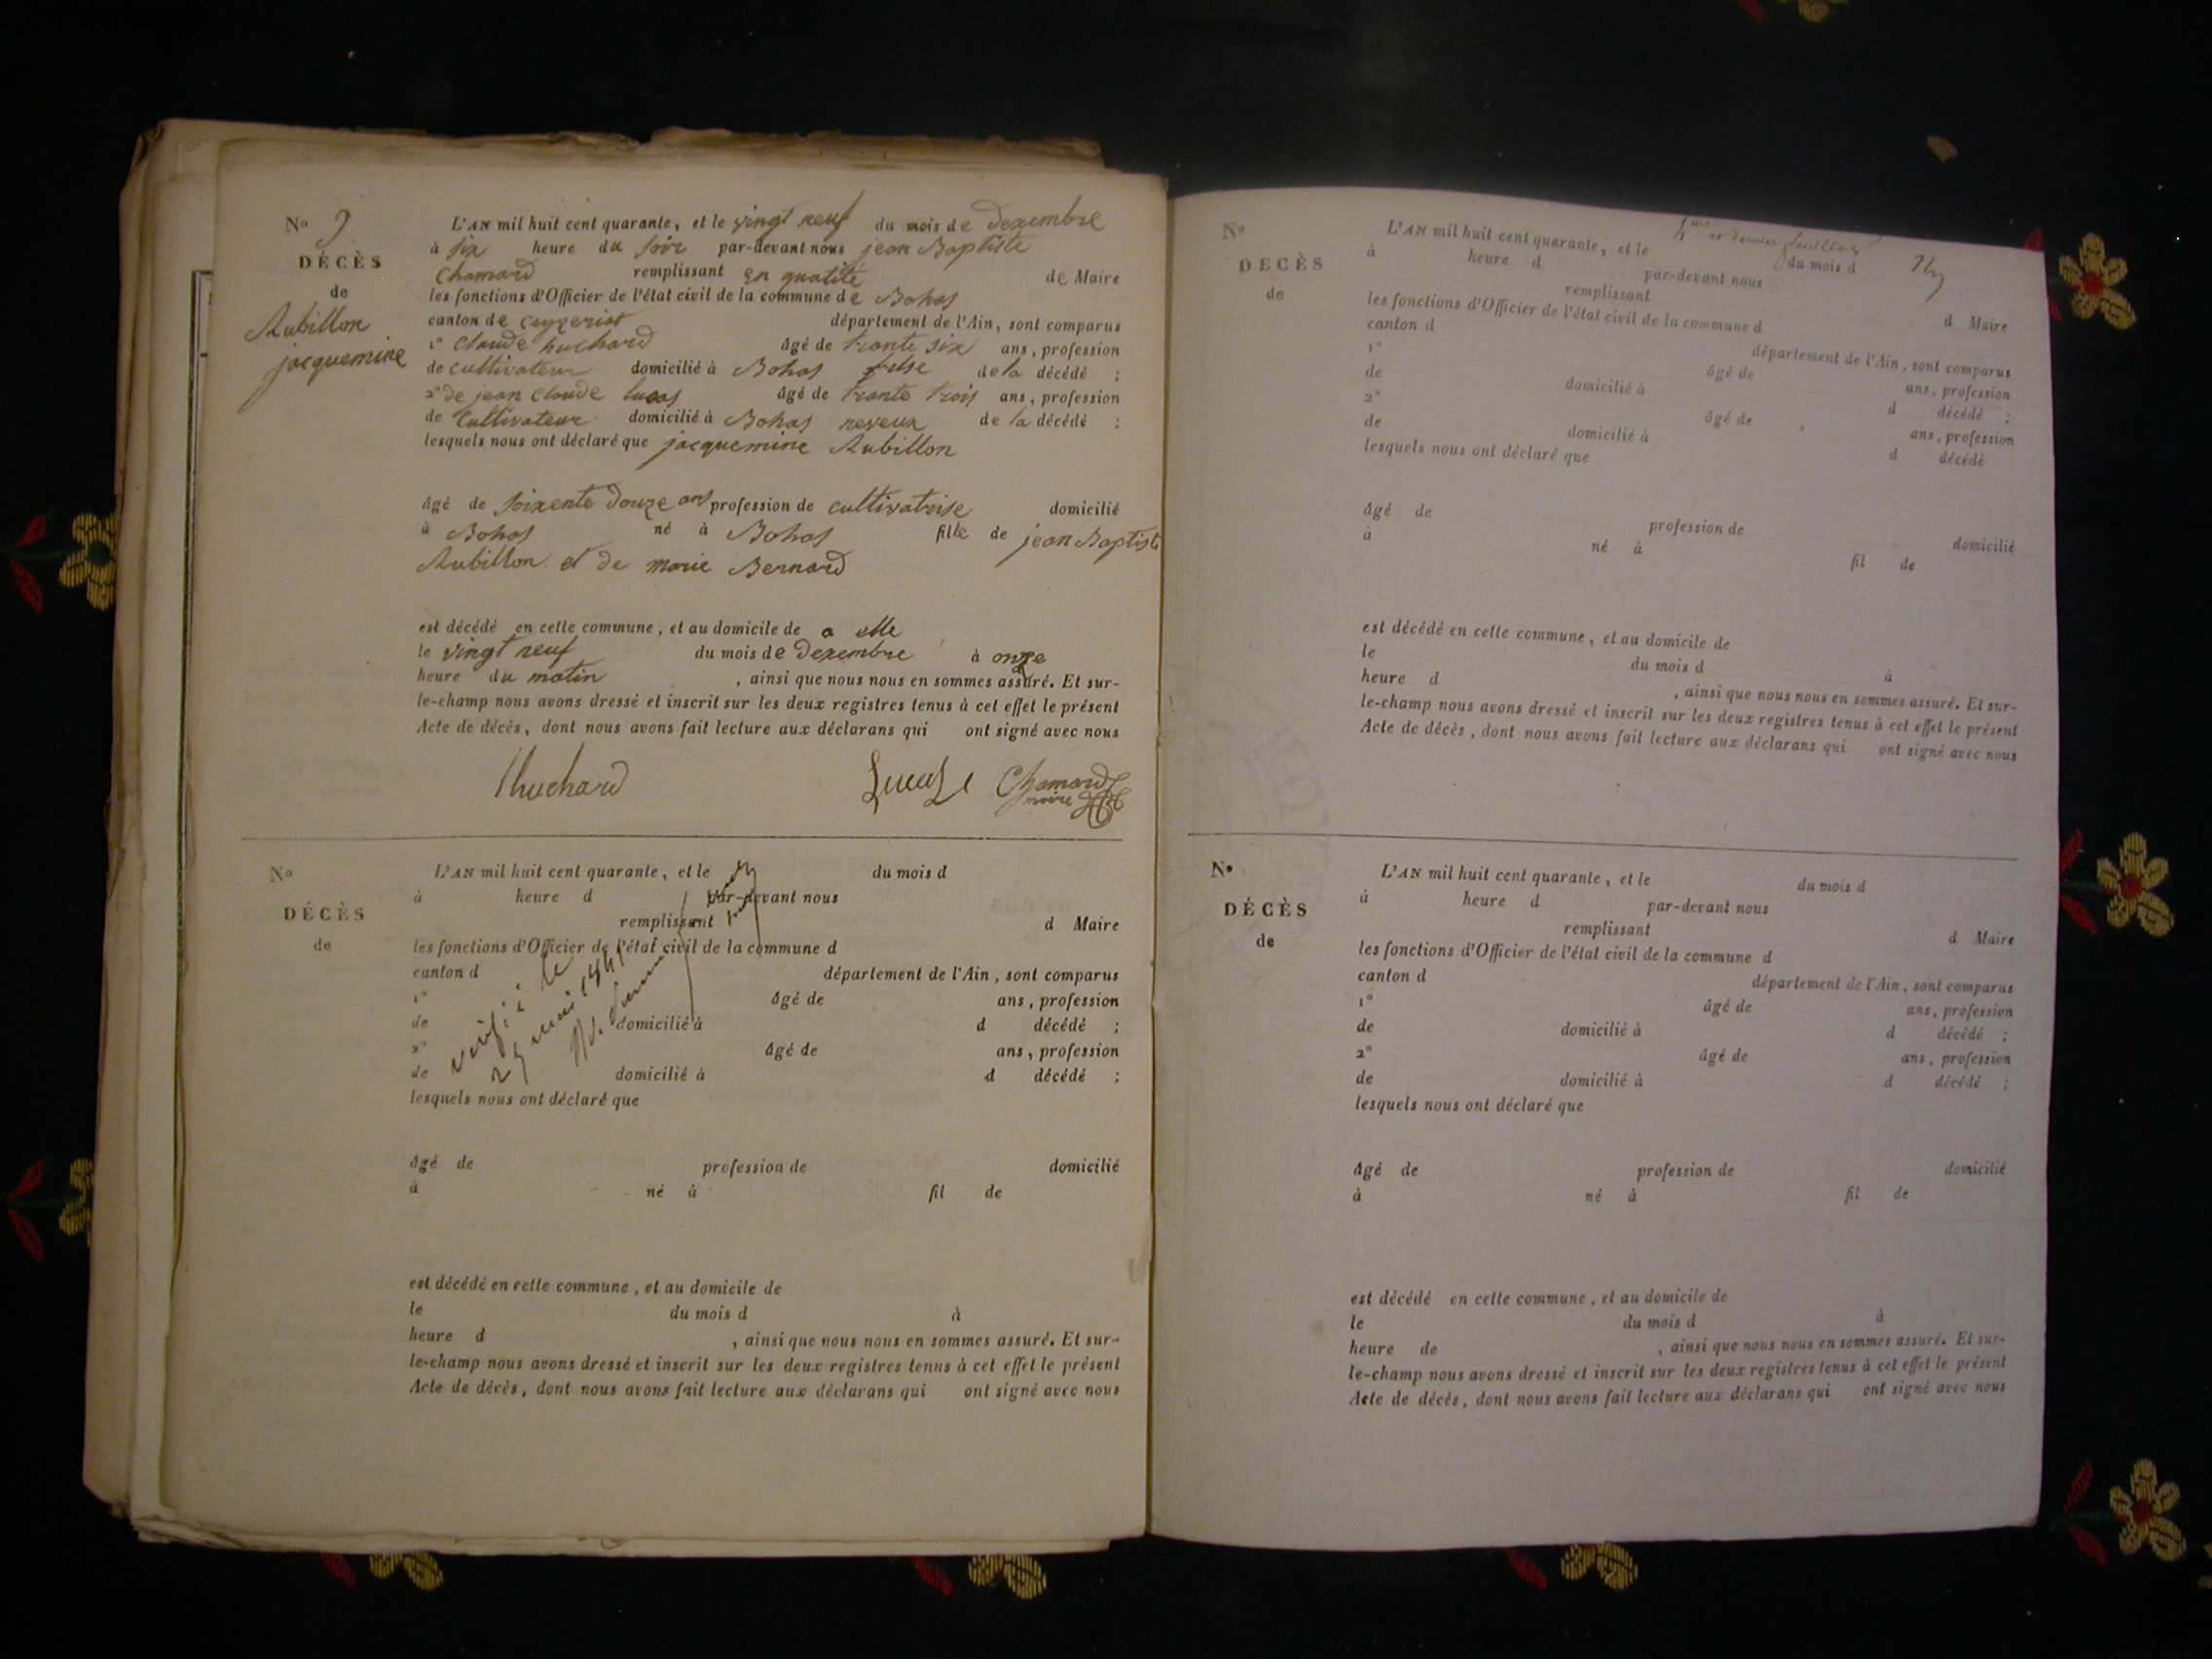 No 9
DÉCÈS
de
Rubillon
jacquemine
L'AN mil huit cent quarante, et le vingt neuf du mois de dexembre
à six heure du soir par-devant nous jean Baptiste
Chamard remplissant en qualité de Maire
les fonctions d'Officier de l'état civil de la commune de Bohas
canton de Ceyzeriat département de l'Ain, sont comparus
1° Claude huchard âgé de trante six ans, profession
de cultivateur domicilié à Bohas de la décédé ;
2° de jean Claude lucas âgé de trante trois ans, profession
de Cultivateur domicilié à Bohas neveux de la décédé ;
lesquels nous ont déclaré que jacquemine Rubillon
âgé de soixente douze ans profession de cultivatrise domicilié
à Bohas né à Bohas fille de jean Baptiste
Rubillon et de marie Bernard
est décédé en cette commune, et au domicile de a elle
le vingt neuf du mois de dexembre à onze
heure du matin , ainsi que nous nous en sommes assuré. Et sur-
le-champ nous avons dressé et inscrit sur les deux registres tenus à cet effet le présent
Acte de décès, dont nous avons fait lecture aux déclarans qui ont signé avec nous
huchard Lucas Chamard
maire
No
DÉCÈS
de
L'AN mil huit cent quarante, et le du mois d
à heure d par-devant nous
remplissant d Maire
les fonctions d'Officier de l'état civil de la commune d
canton d département de l'Ain, sont comparus
1° âgé de ans, profession
de domicilié à d décédé ;
2° âgé de ans, profession
de domicilié à d décédé ;
lesquels nous ont déclaré que
vérifié le
25 mai 1841
âgé de profession de domicilié
à né à fil de
est décédé en cette commune, et au domicile de
le du mois d à
heure d , ainsi que nous nous en sommes assuré. Et sur-
le-champ nous avons dressé et inscrit sur les deux registres tenus à cet effet le présent
Acte de décès, dont nous avons fait lecture aux déclarans qui ont signé avec nous
No
DECÈS
de
L'AN mil huit cent quarante, et le du mois d
à heure d par-devant nous
remplissant d Maire
les fonctions d'Officier de l'état civil de la commune d
canton d département de l'Ain, sont comparus
1° âgé de ans, profession
de domicilié à d décédé ;
2° âgé de ans, profession
de domicilié à d décédé
lesquels nous ont déclaré que
âgé de profession de domicilié
à né à fil de
est décédé en cette commune, et au domicile de
le du mois d à
heure d , ainsi que nous nous en sommes assuré. Et sur-
le-champ nous avons dressé et inscrit sur les deux registres tenus à cet effet le présent
Acte de décès, dont nous avons fait lecture aux déclarans qui ont signé avec nous
No
DÉCÈS
de
L'AN mil huit cent quarante, et le du mois d
à heure d par-devant nous
remplissant d Maire
les fonctions d'Officier de l'état civil de la commune d
canton d département de l'Ain, sont comparus
1° âgé de ans, profession
de domicilié à d décédé ;
2° âgé de ans, profession
de domicilié à d décédé ;
lesquels nous ont déclaré que
âgé de profession de domicilié
à né à fil de
est décédé en cette commune, et au domicile de
le du mois d à
heure de , ainsi que nous nous en sommes assuré. Et sur-
le-champ nous avons dressé et inscrit sur les deux registres tenus à cet effet le présent
Acte de décès, dont nous avons fait lecture aux déclarans qui ont signé avec nous